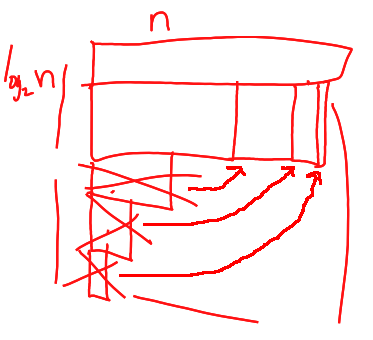 n
log₂ n